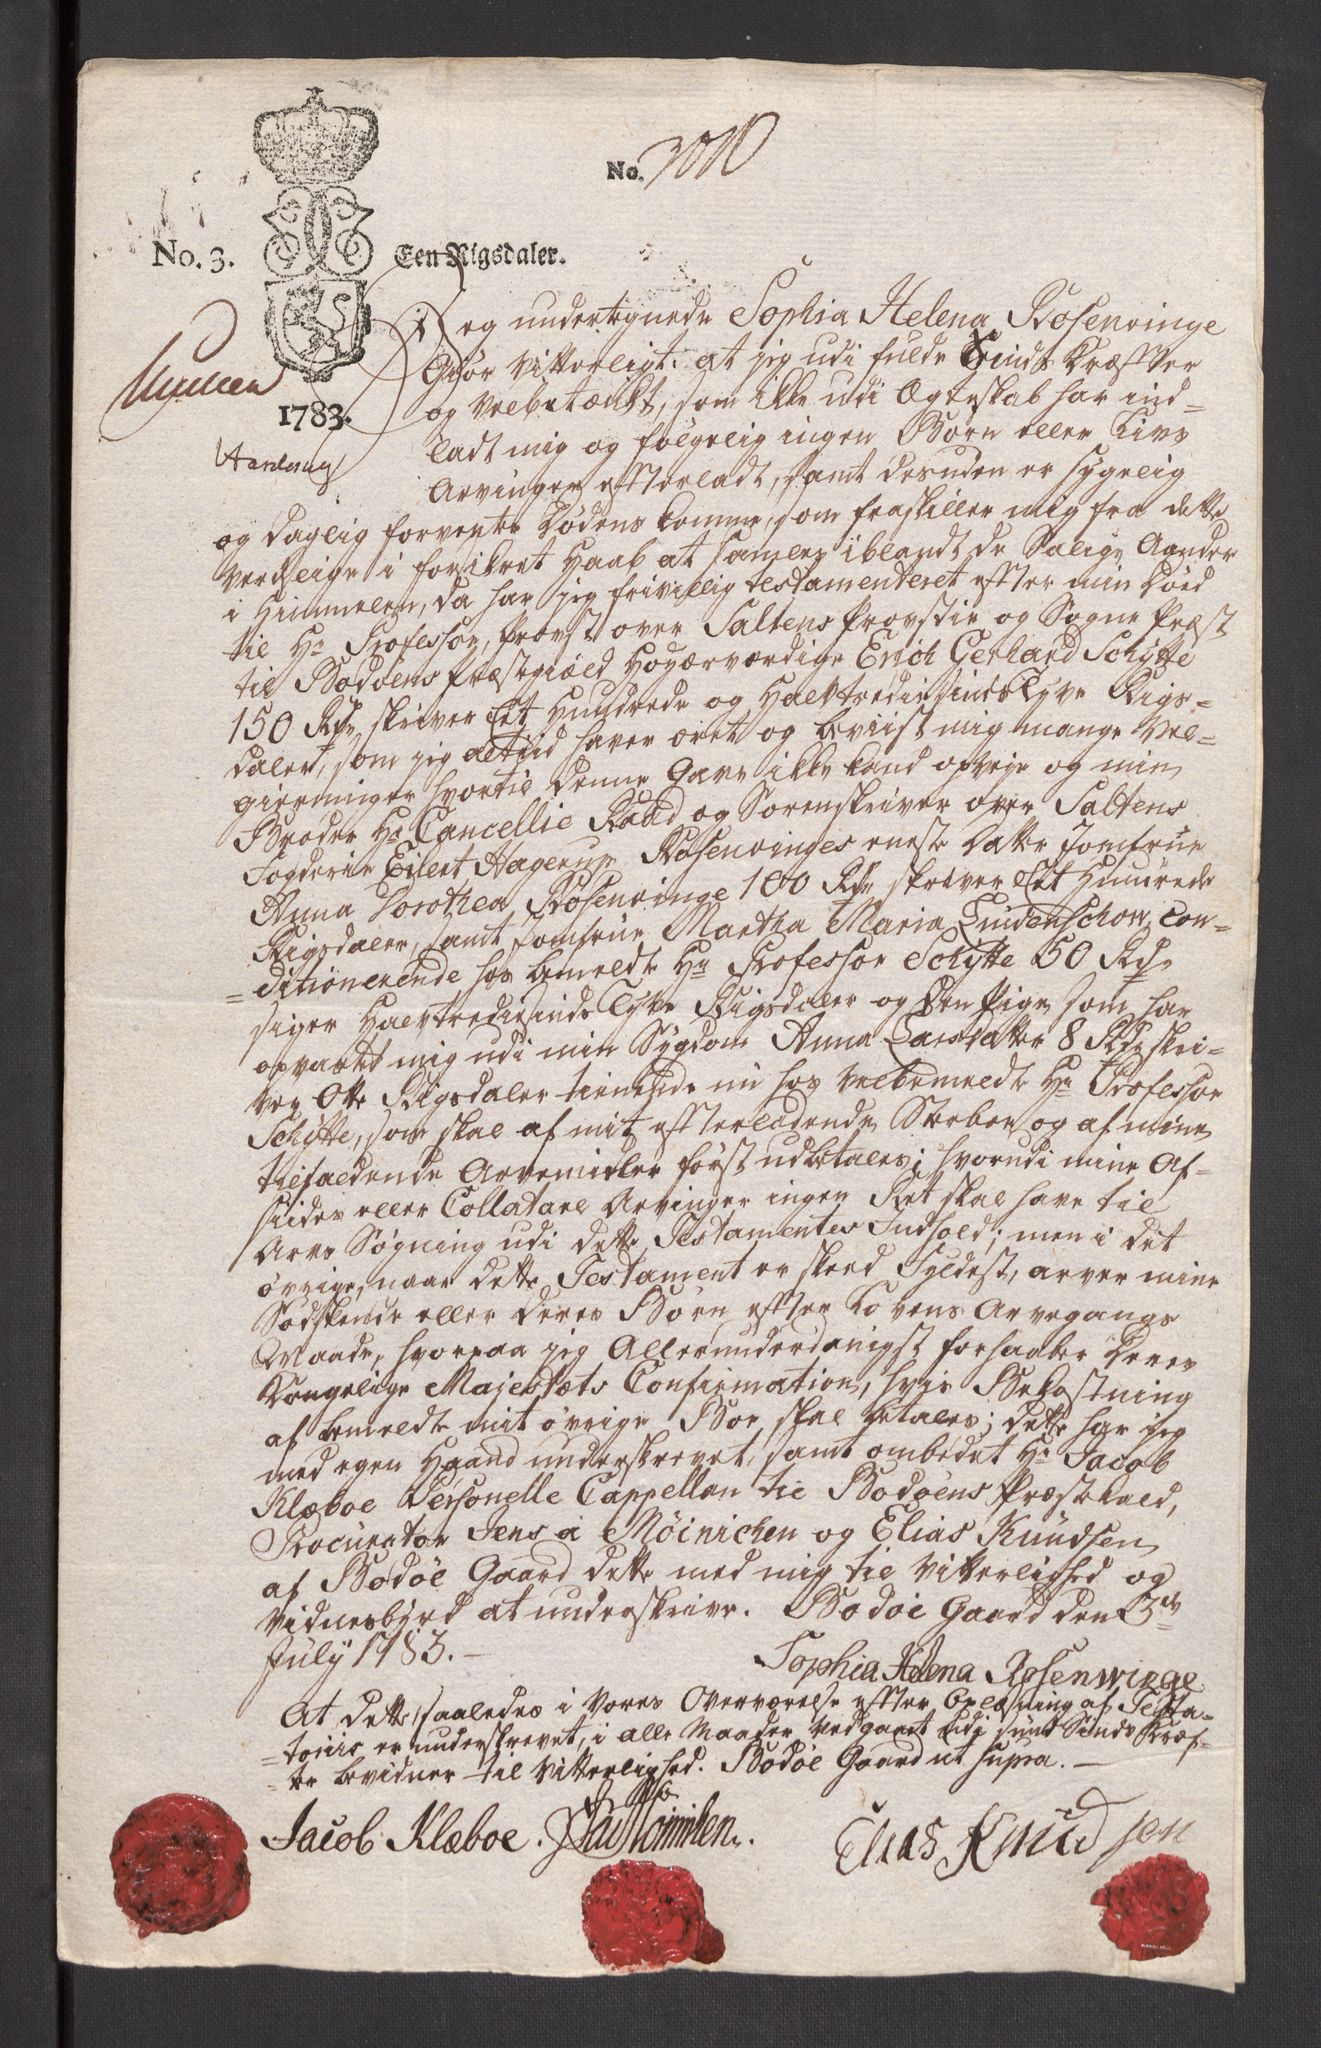 No.
No. 3. Een Rigsdaler.
1783.
Jeg undertegnede Sophia Helena Rosenvinge
Giør vitterligt: at jeg udi fulde Sinds Kræfter
og velbetænkt, som ikke udi Ægteskab har ind-
ladt mig og følgelig ingen Børn eller Livs
Arvinger efterladt, samt desuden er sygelig
og daglig forventer Dødens komme, som fraskiller mig fra dette
Verdslige i forsikret Haab at samles iblandt de Salige Aander
i Himmelen, da har jeg frivillig testamenteret efter min Død
til Hr Professor, Provst over Saltens Provstie og Sogne Præst
til Bodøens Præstegield Høyærværdige Erich Gerhard Schytte
150 Rdr skriver Et Hundrede og Halvtredsindstyve Rigs-
daler, som jeg altiid haver æret og beviist mig mange Vel-
gierninger hvortil denne Gave ikke kand opveje og min
Broder Hr Cancellie Raad og Sorenskriver over Saltens
Fogderie Eilert Hagerup Rosenvinges eneste Datter Jomfrue
Anna Dorothea Rosenvinge 100 Rdr skriver Et Hundrede
Rigsdaler, samt Jomfrue Martha Maria Lindenschow, Con-
=ditionerende hos bemeldte Hr Professor Schytte 50 Rdr
siger Halvtredsindstyve Rigsdaler og den Pige som har
opvartet mig udi min Sygdom Anna Larsdatter 8 Rdr skri-
ver Otte Rigsdaler tienende nu hos velbemeldte Hr Professor
Schytte, som skal af mit efterladende Sterboe og af mine
tilfaldende Arvemidler først udbetales; hvorudi mine Af-
siides eller Collateral Arvinger ingen Ret skal have til
Arve Søgning udi dette Testamentes Indhold; men i det
øvrige, naar dette Testament er skeed Fyldest, arver mine
Sødskende eller deres Børn efter Lovens Arvegangs
Maade, hvorpaa jeg Allerunderdanigst forhaaber Deres
Kongelige Majestæts Confirmation, hvis Bekostning
af bemeldte mit øvrige Boe skal betales; dette har jeg
med egen Haand underskrevet, samt ombedet Hr Jacob
Klæboe Personelle Cappellan til Bodøens Præstekald,
Procurator Jens a Møinichen og Elias Knudsen
af Bodøe Gaard dette med mig til Vitterlighed og
Vidnesbyrd at underskrive. Bodøe Gaard den 3de
July 1783.
Sophia Helena Rosenwinge
At dette saaledes i Vores Overværelse efter Oplæsning af Testa-
=toriis er underskrevet, i alle Maader vedgaaet udi sund Sinds Kræf-
=ter bevidner til Vitterlighed. Bodøe Gaard ut supra.
Jacob Klæboe. Møinichen. Elias Knudsen